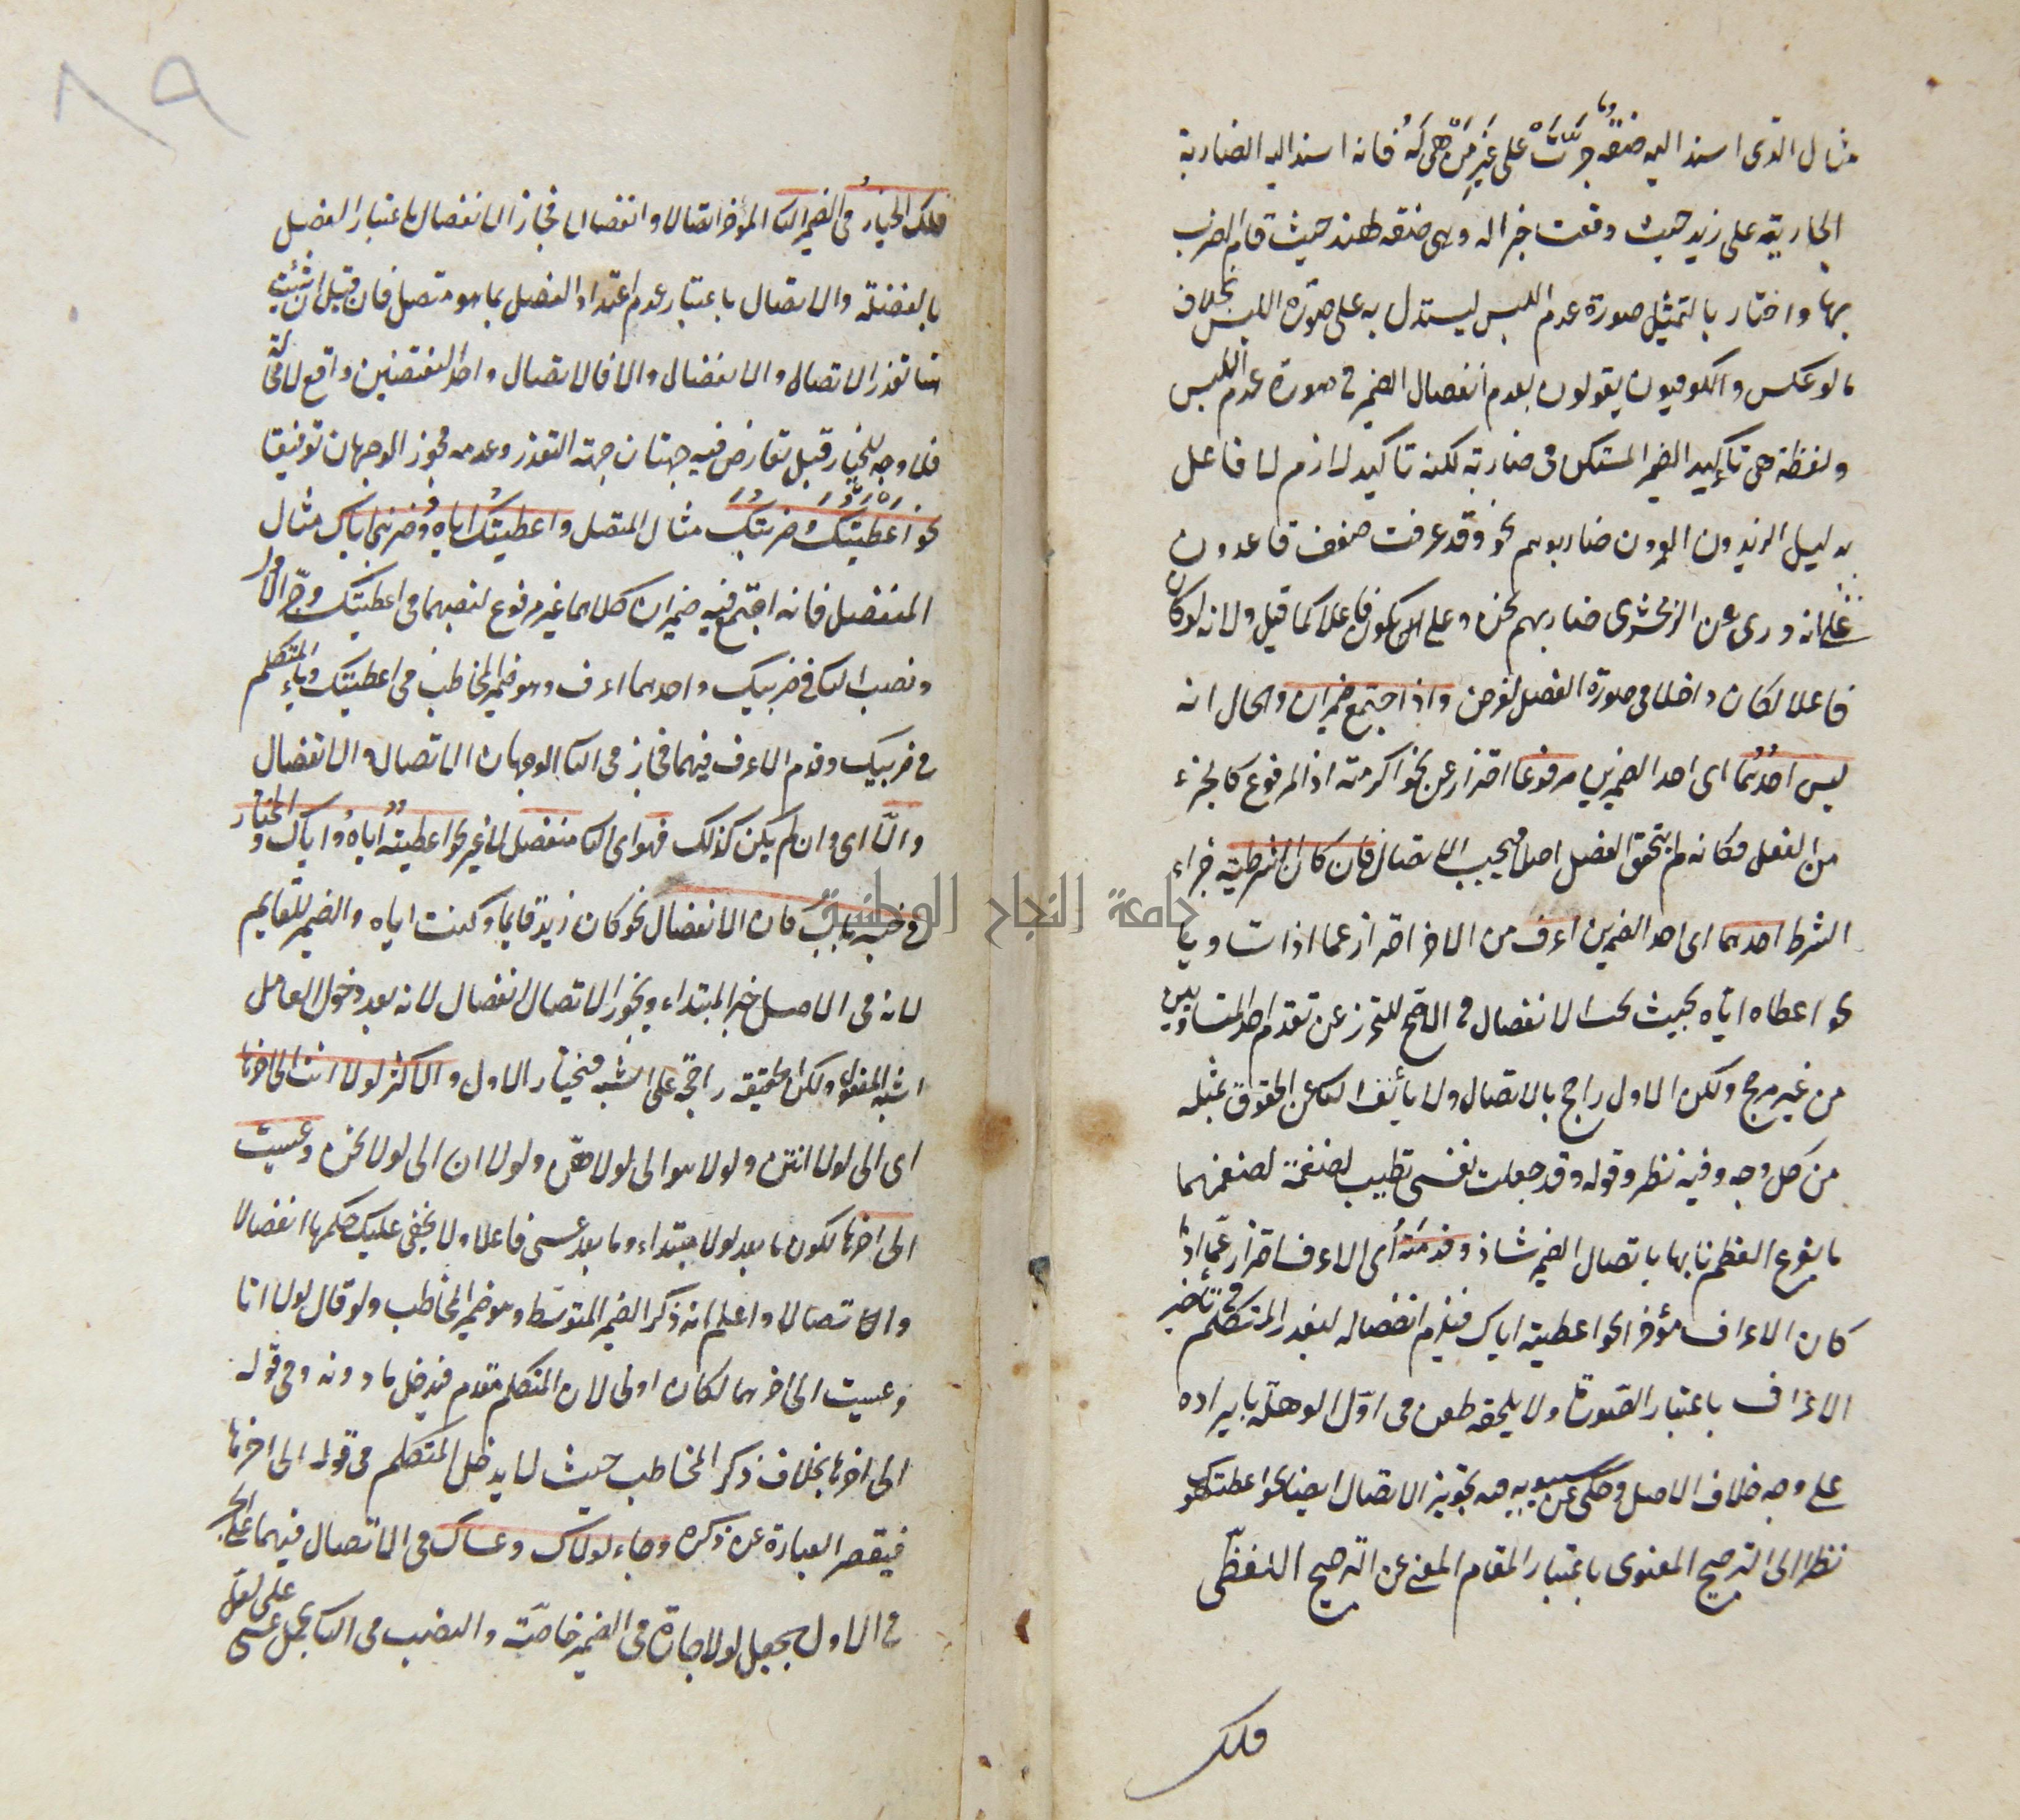 مثال الذى اسند اليه صفة جرت على غير من هى له فانه اسند اليه الضاربة
الجارية على زيد حيث وقعت خبرا له وهى صفة لهند حيث قام الضرب
بها واختار بالتمثيل صورة عدم اللبس ليستدل به على صورة اللبس بخلاف
ما لو عكس والكوفيون يقولون بعدم انفصال الضمير فى صورة عدم اللبس
ولفظة هى تأكيد الضمير المستكن فى ضاربته لكنه تاكيد لازم لا فاعل
بدليل الزيدون العمرون ضاربوهم نحن وقد عرفت ضعف قاعدون
غلمانه وروى عن الزمخشرى ضاربهم نحن وعلى هذا يكون فاعلا كما قيل ولانه لو كان
فاعلا لكان داخلا فى صورة الفصل لغرض واذا اجتمع ضميران والحال انه
ليس احدهما اى احد الضميرين مرفوعا احتراز عن نحو اكرمته اذ المرفوع كالجزء
من الفعل فكانه لم يتحقق الفصل اصلا فيجب الاتصال فان كان الشرطية جزاء
الشرط احدهما اى احد الضميرين اعرف من الاخر احتراز عما اذا تساويا
نحو اعطاه اياه بحيث يجب الانفصال فى الاصح للتحرز عن تقدم احد المتساويين
من غير مرجح ولكن الاول راجح بالاتصال ولا يأنف الثانى عن الحقوق بمثله
من كل وجه وفيه نظر وقوله وقد جعلت نفسى تطيب لضغمة لضغمهما
ما يقرع العظم نابها باتصال الضمير شاذ وقدمته اى الاعرف احتراز عما اذا
كان الاعراف مؤخرا نحو اعطيته اياك فيلزم انفصاله ليعذر المتكلم فى تأخير
الاعراف باعتبار الصورة ولا يلحقه طعن فى اول الوهلة بايراده
على وجه خلاف الاصل وحكى عن سيبويه تجويز الاتصال ايضا نحو اعطيتهوك
نظرا الى الترجيح المعنوى باعتبار المقام المغنى عن الترجيح اللفظى
فلك
٨٩
فلك الخيار فى الضمير الثانى المؤخر اتصالا وانفصالا فجاز الانفصال باعتبار الفصل
بالفضلة والاتصال باعتبار عدم اعتداد الفصل بما هو متصل فان قيل ان ثبت
هنا تعذر الاتصال والانفصال والا فالاتصال واحد النقيضين واقع لا محالة
فلا وجه للخيار قيل تعارض فيه جهتان جهة التعذر وعدمه فجوز الوجهان توفيقا
نحو اعطيتك وضربيك مثال المتصل واعطيتك اياه وضربى اياك مثال
المنفصل فانه اجتمع فيه ضميران كلاهما غير مرفوع لنصبهما فى اعطيتك وجر الاول
ونصب الثانى فى ضربيك واحدهما اعرف وهو ضمير المخاطب فى اعطيتك وياء المتكلم
فى ضربيك وقدم الاعرف فيهما فجاز فى الثانى الوجهان الاتصال والانفصال
والا اى وان لم يكن كذلك فهو اى الثانى منفصل لا غير نحو اعطيته اياه او اياك والمختار
فى خبر باب كان الانفصال نحو كان زيد قايما وكنت اياه والضمير للقايم
لانه فى الاصل خبر المبتداء ويجوز الاتصال انفصال لانه بعد دخول العامل
اشبه المفعول ولكن الحقيقة راجحة على الشبه فيختار الاول والاكثر لولا انت الى اخرها
اى الى لولا انتن ولولا هو الى لولا هن ولولا انا الى لولا نحن وعسيت
الى اخرها لكون ما بعد لولا مبتداء وما بعد عسى فاعلا ولا يخفى عليك حكمها انفصالا
والاتصالا واعلم انه ذكر الضمير المتوسط وهو ضمير المخاطب ولو قال لولا انا
وعسيت الى اخرهما لكان اولى لان المتكلم مقدم فيدخل ما دونه وفى قوله
الى اخرها بخلاف ذكر المخاطب حيث لا يدخل المتكلم فى قوله الى اخرها
فيقصر العبارة عن ذكره وجاء لولاك وعساك فى الاتصال فيهما على الجر
فى الاول بجعل لولا جارة فى الضمير خاصة والنصب فى الثانى بحمل عسى على لعل
جامعة النجاح الوطنية